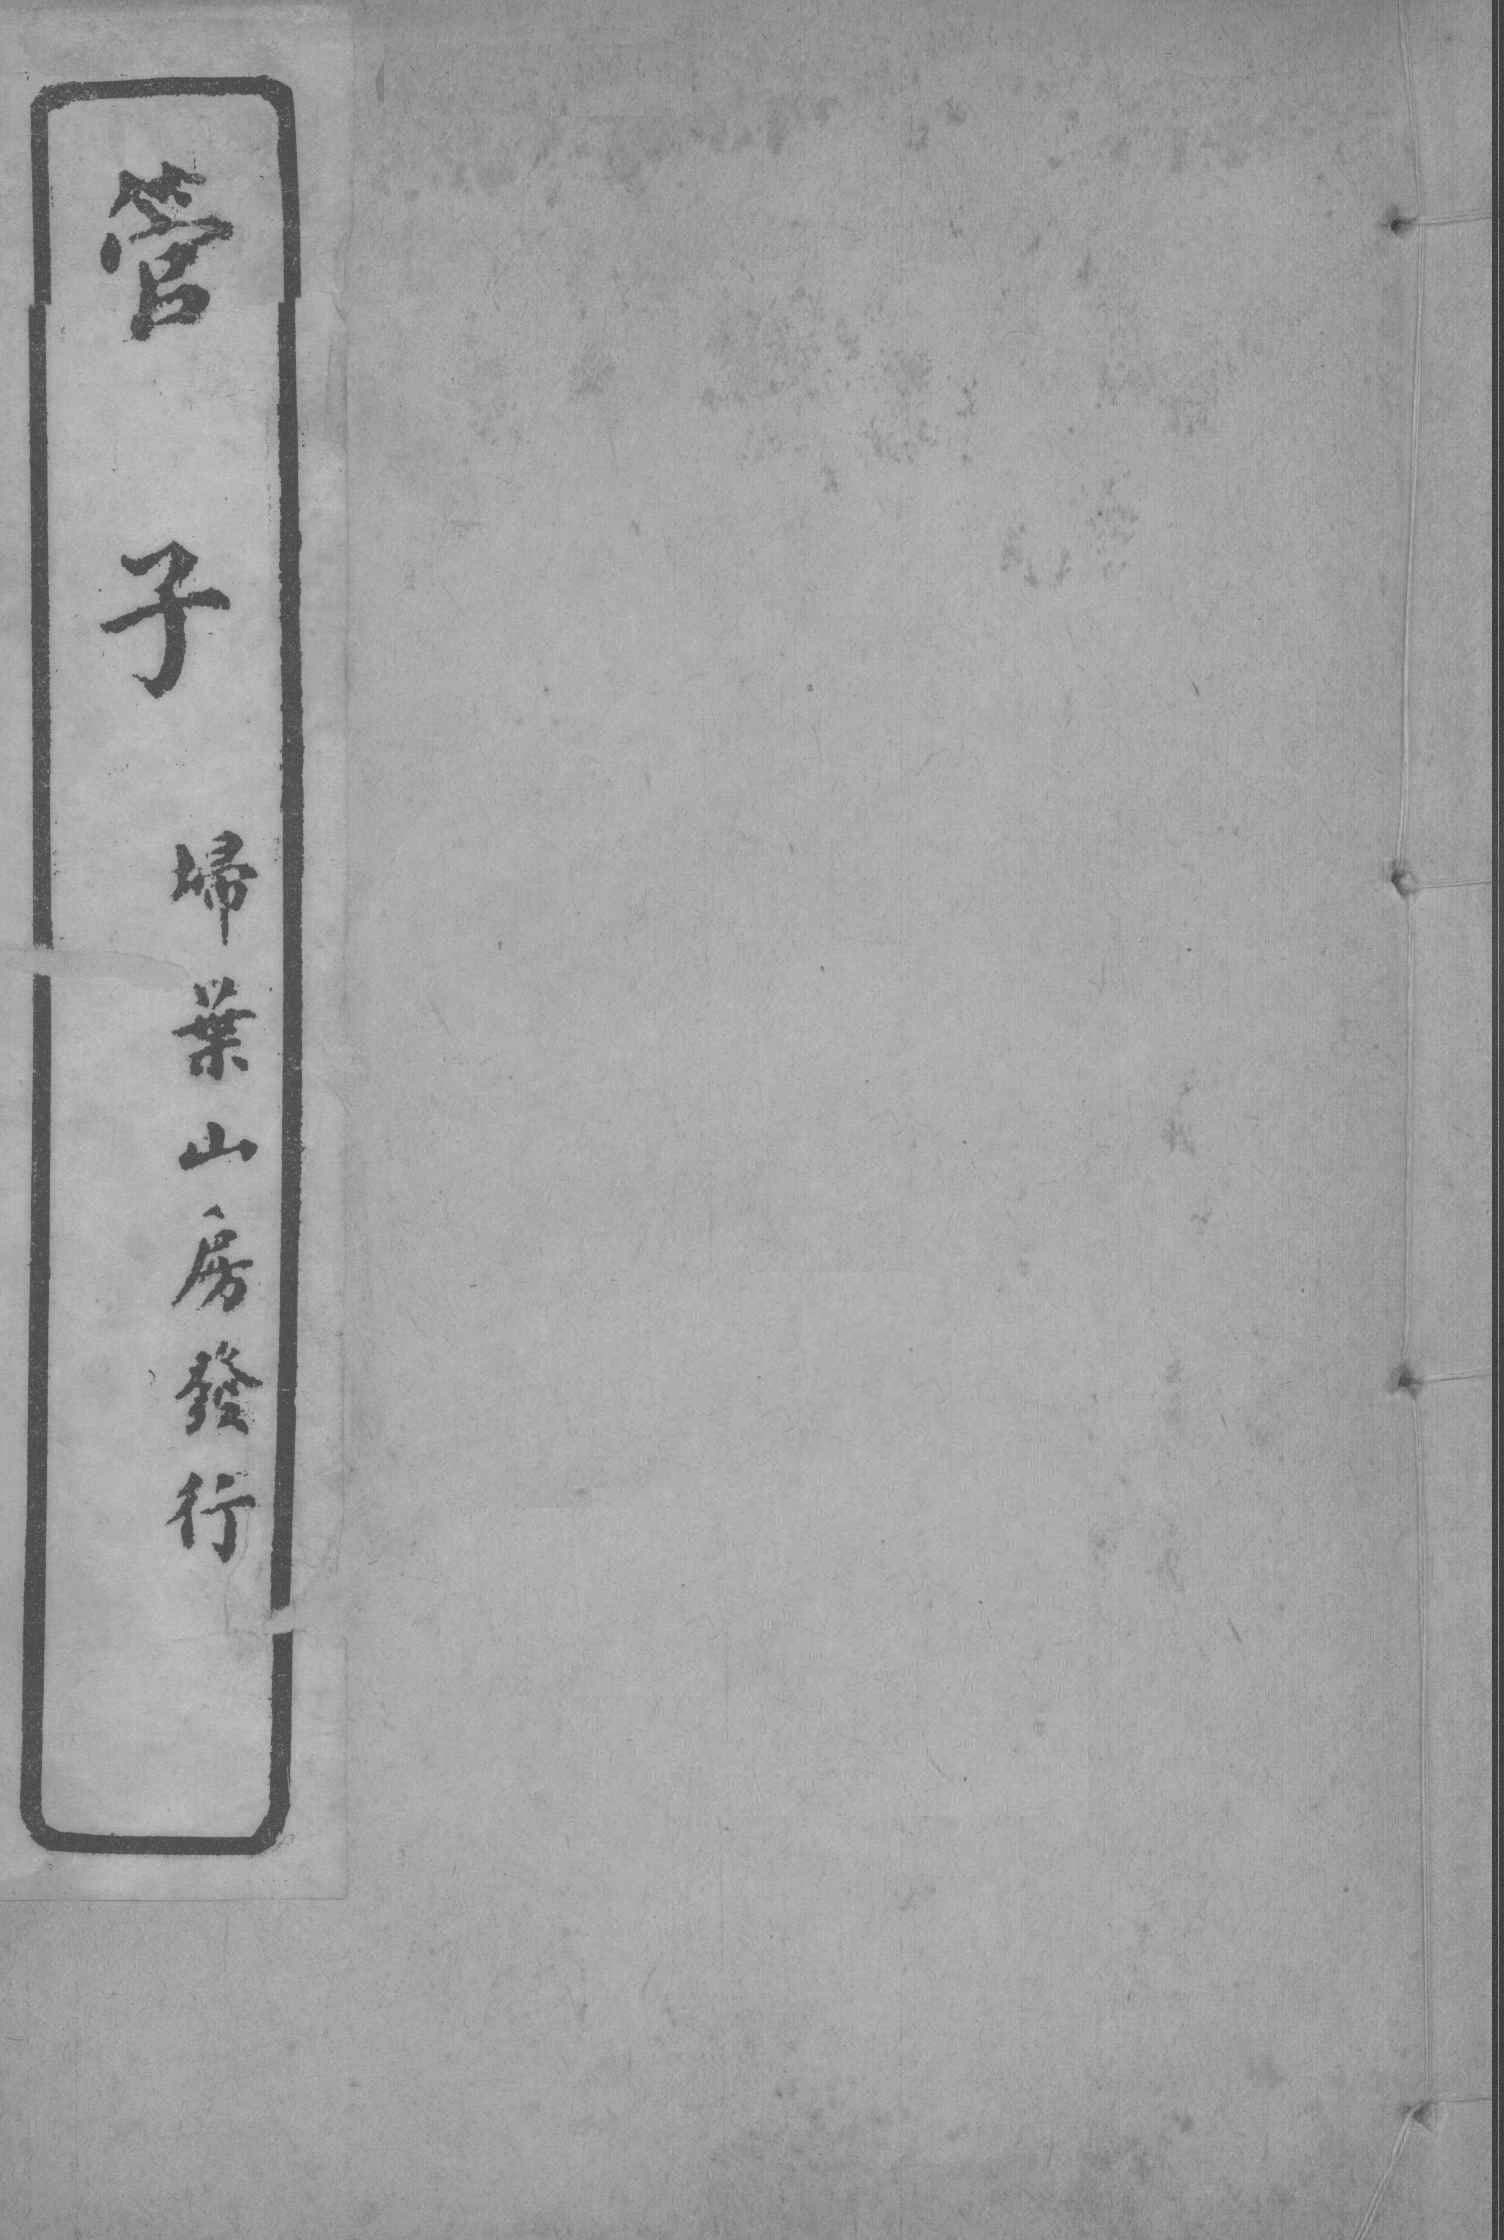 管子
埽葉山房發行